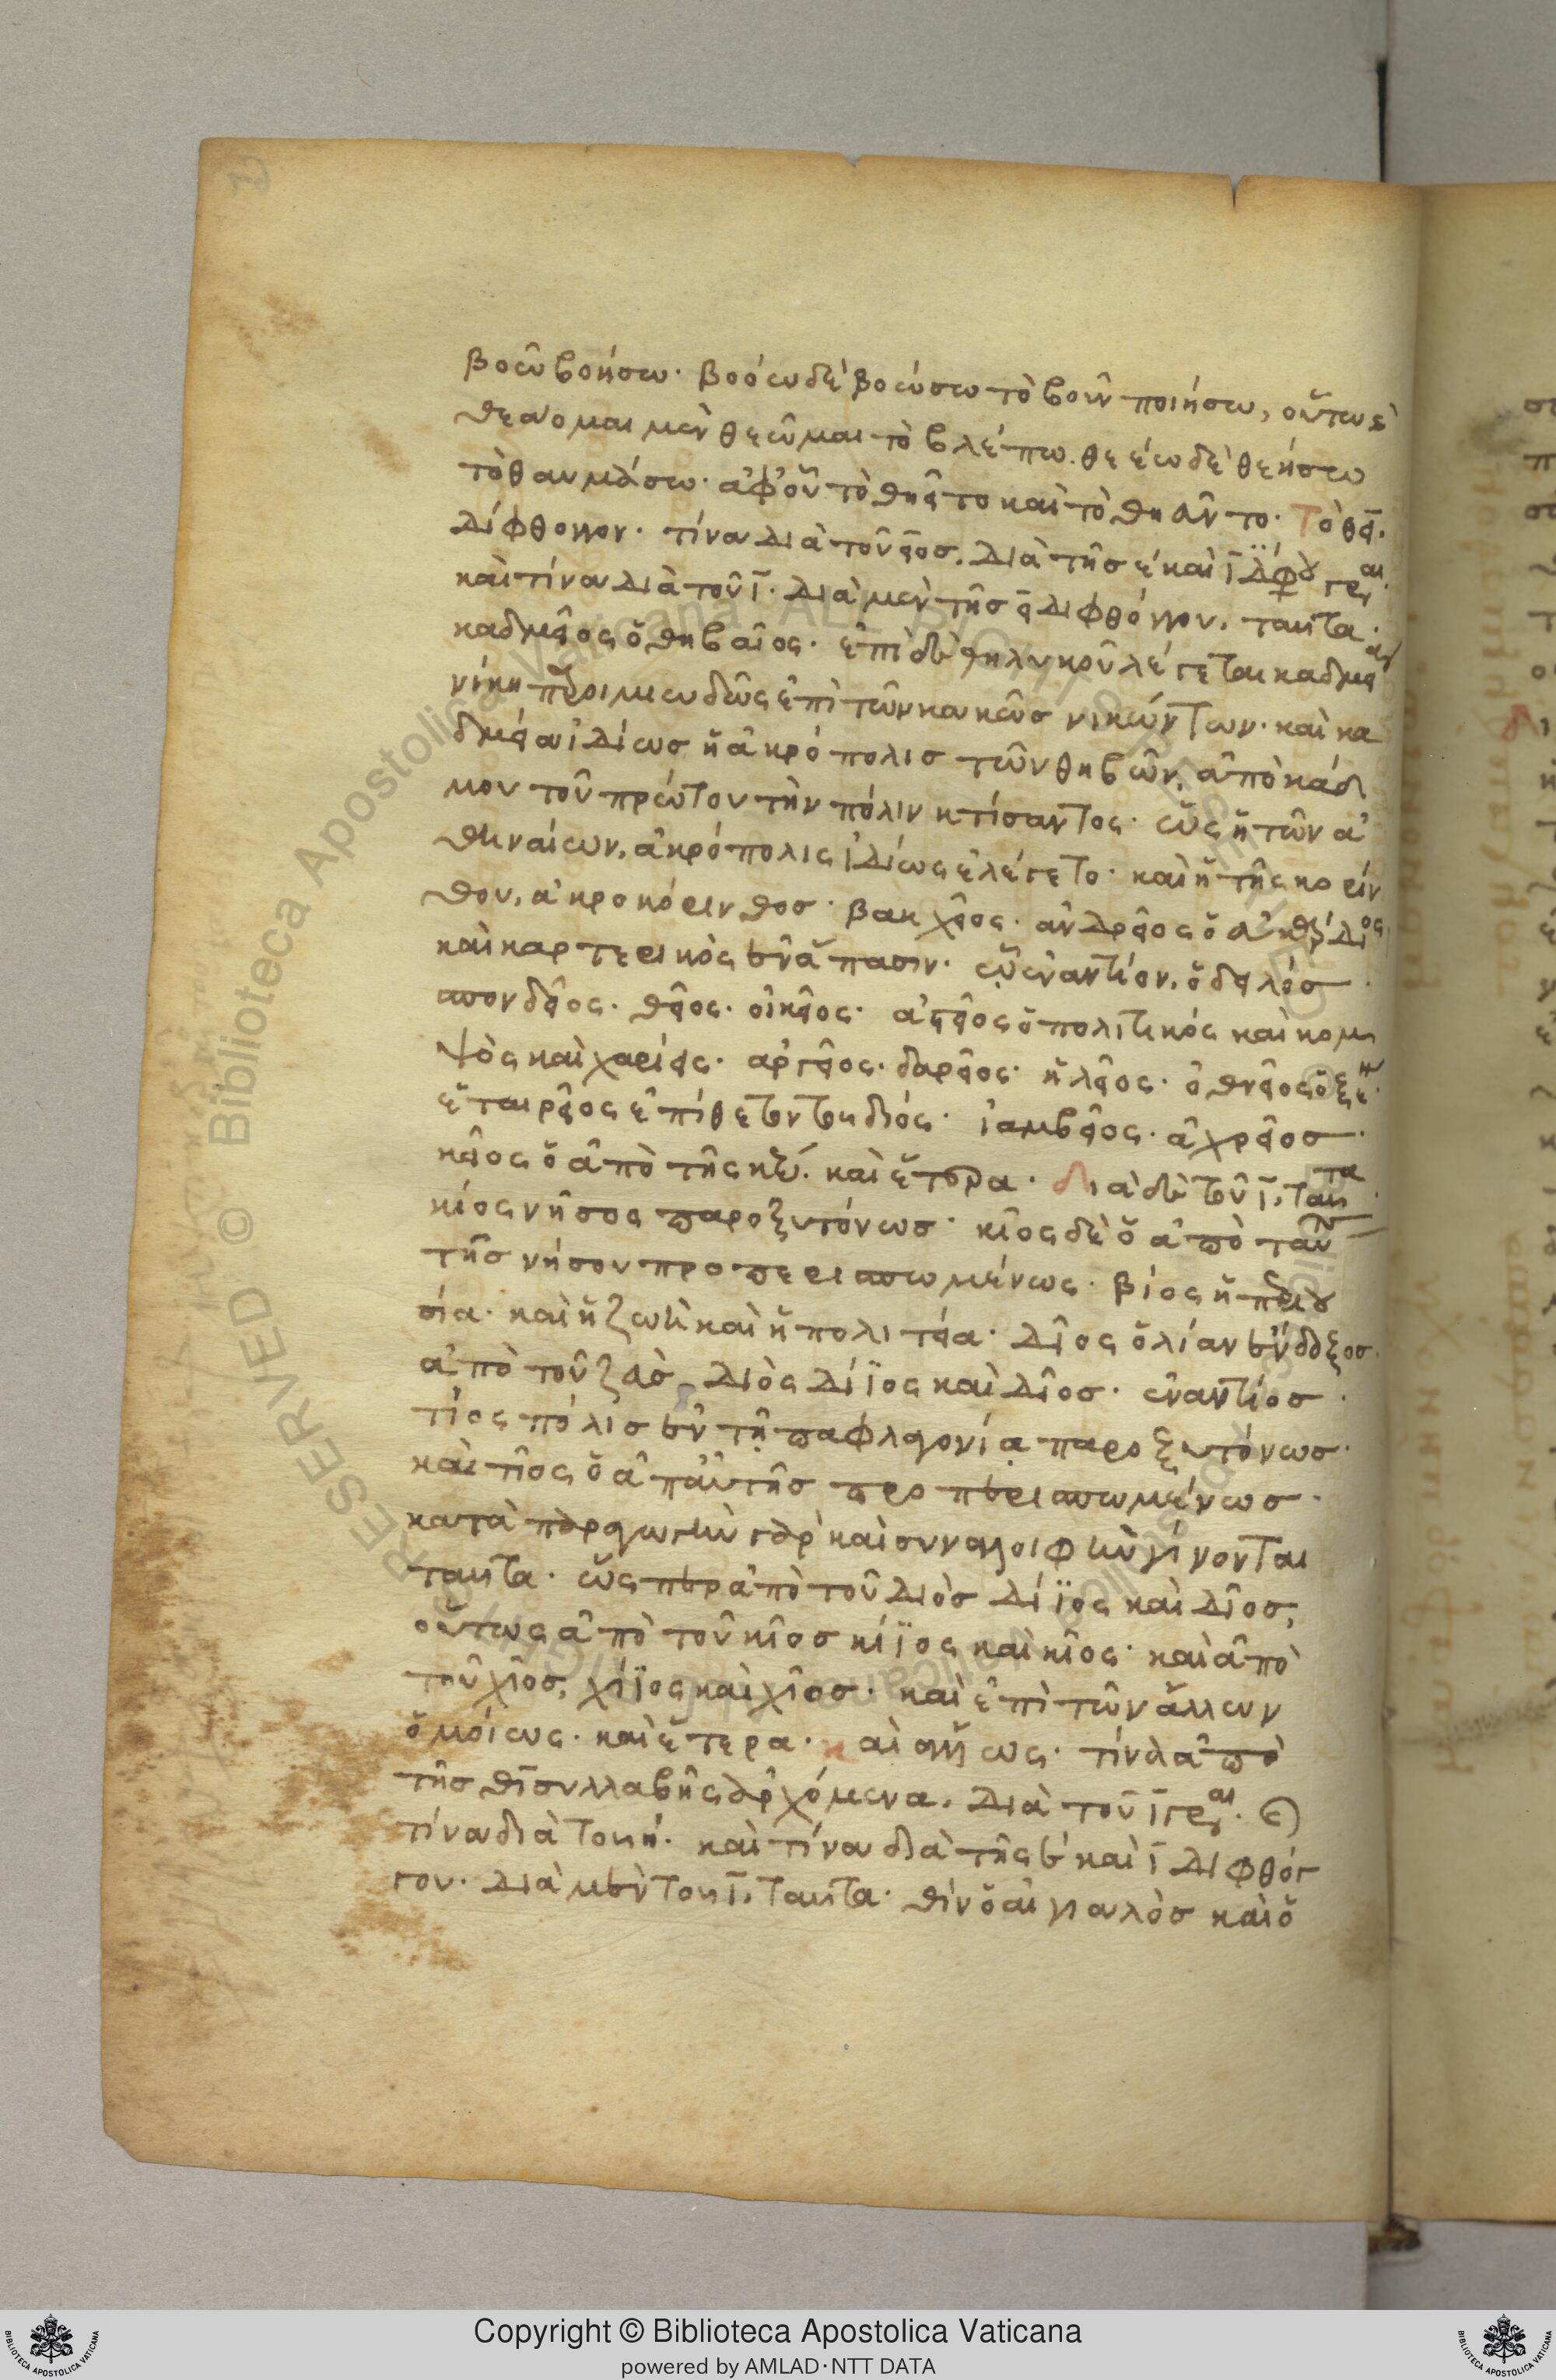 βοῶ βοήσω· βοόω δὲ βοώσω τὸ βοῦν ποιήσω, οὕτως
θεάομαι μὲν θεῶμαι τὸ βλέπω. θεέω δὲ θεήσω
τὸ θαυμάσω· ἀφ' οὗ τὸ θηεῖτο καὶ τὸ θηᾶντο· Τὸ θει.
δίφθογγον· τίνα διὰ τοῦ ειος. διὰ τῆς ε καὶ ϊ
καὶ τίνα διὰ τοῦ ϊ· διὰ μὲν τῆς ει διφθόγγου. ταῦτα·
καδμεῖος ὁ θηβαῖος· ἐπὶ δὲ θηλυκοῦ λέγεται καδμεία
νίκη παροιμιωδῶς ἐπὶ τῶν κακῶς νικώντων· καὶ κα
δμεία ἰδίως ἡ ἀκρόπολις τῶν θηβῶν, ἀπὸ κάδ
μου τοῦ πρώτου τὴν πόλιν κτίσαντος· ὡς ἡ τῶν ἀ
θηναίων. ἀκρόπολις ἰδίως ἐλέγετο· καὶ ἡ τῆς κορίν
θου, ἀκροκόρινθος· βακχεῖος· ἀνδρεῖος ὁ
καὶ καρτερικὸς ἐν ἅπασιν· ᾧ ἐναντίον. ὁ δειλός·
σπονδεῖος· θεῖος· οἰκεῖος· ἀστεῖος ὁ πολιτικός καὶ κομ
ψὸς καὶ χαρίεις· ἀργεῖος· δαρεῖος· ἠλεῖος· ὀθνεῖος
ἑταιρεῖος ἐπίθετον τοῦ διός· ἰαμβεῖος· ἀχρεῖος·
κεῖος ὁ ἀπὸ τῆς κέω. καὶ ἕτερα· διὰ δὲ τοῦ ϊ, ταῦτα·
κίος νῆσος παροξυτόνως· κῖος δὲ ὁ ἀπὸ ταύ
της νήσου προπερισπωμένως· βίος ἡ περιου
σία· καὶ ἡ ζωὴ καὶ ἡ πολιτεία· δῖος ὁ λίαν ἔνδοξος.
ἀπὸ τοῦ ζὰς διὸς δίϊος καὶ δῖος· ἐναντίος·
τίος πόλις ἐν τῇ παφλαγονίᾳ παροξυτόνως·
καὶ τῖος ὁ ἀπ' αὐτῆς προπερισπωμένως·
κατὰ παραγωγὴν γὰρ καὶ συναλοιφὴν γίνονται
ταῦτα· ὥσπερ ἀπὸ τοῦ διὸς δίϊος καὶ δῖος,
οὕτως ἀπὸ τοῦ κῖος κίϊος καὶ κῖος· καὶ ἀπὸ
τοῦ χῖος, χίϊος καὶ χῖος· καὶ ἐπὶ τῶν ἄλλων
ὁμοίως· καὶ ἕτερα· καὶ ἄλλως· τίνα ἀπὸ
τῆς θι συλλαβῆς ἀρχόμενα. διὰ τοῦ ϊ γράφεται·
τίνα διὰ τοῦ η. καὶ τίνα διὰ τῆς ε καὶ ϊ διφθόγ
γου· διὰ μὲν τοῦ ϊ, ταῦτα· θὶν ὁ αἰγιαλὸς καὶ ὁ
Copyright © Biblioteca Apostolica Vaticana
powered by AMLAD·NTT DATA